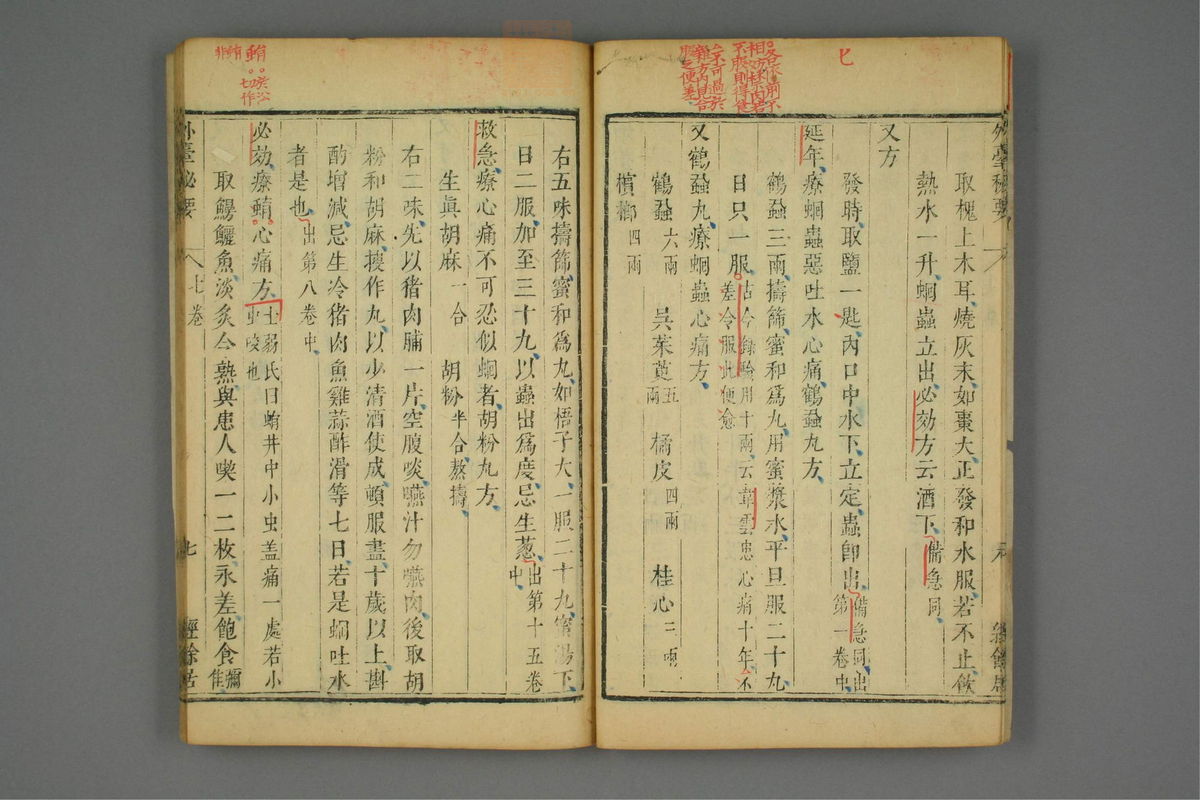 七
取槐上木耳燒灰末如棗大正發和水服若不止飲
熱水一升蛔蟲立出必効方云酒下備急同
又方
發時取鹽一匙內口中水下立定蟲即出備急同出
第一卷中
延年療蛔蟲惡吐水心痛鶴蝨丸方
鶴蝨三兩擣篩蜜和為丸用蜜漿水平旦服二十丸
日只一服古今錄驗用十兩云韋雲患心痛十年不
差冷服此便愈
又鶴蝨丸療蛔蟲心痛方
鶴蝨六兩 吳茱萸五兩 橘皮四兩 桂心三兩
檳榔四兩
右五味擣篩蜜和為丸如梧子大一服二十丸蜜湯下
日二服加至三十丸以蟲出為度忌生葱出第十五卷
中
救急療心痛不可忍似蛔者胡粉丸方
生真胡麻一合 胡粉半合熬擣
右二味先以猪肉脯一片空腹啖嚥汁勿嚥肉後取胡
粉和胡麻搜作丸以少清酒使成頓服盡十歲以上斟
酌增減忌生冷猪肉魚雞蒜酢滑等七日若是蛔吐水
者是也出第八卷中
必効療蛕心痛方士弱氏曰蛕井中小虫盖痛一處若小
虫咬也
取鰻鱺魚淡炙令熟與患人喫一二枚永差飽食彌
佳
外臺祕要 七卷 七 經餘居